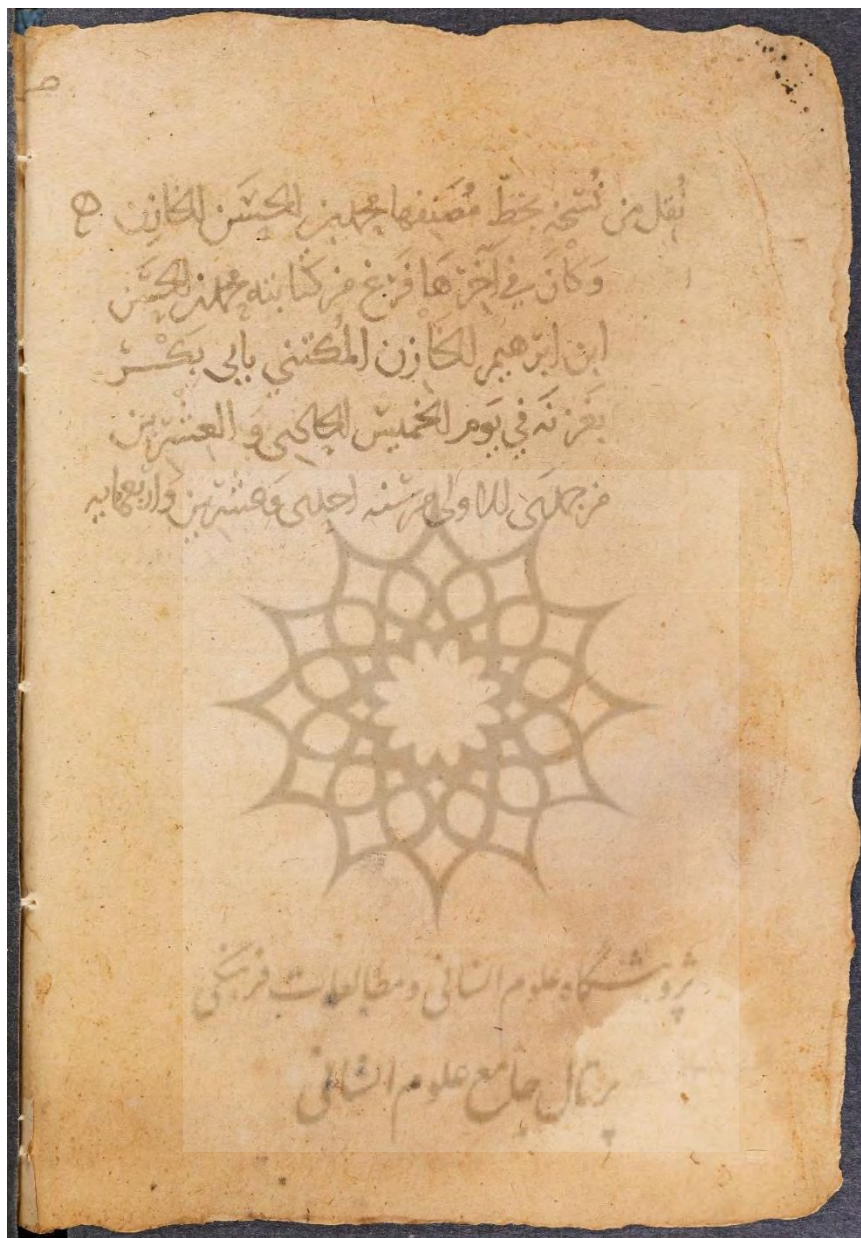 نُقِلَ من نُسْخَةٍ بخطّ مُصَنِفها محمد بن الحسَن الخازِن ه
وَكانَ في آخِرِها فَرَغ من كتابته محمد بن الحسَن
ابن ابرهيم الخَازِن المُكتنى بابى بَكْر
بغَزنَه في يَوم الخميس الحادى وَالعشرين
من جمادَى الاولى من سنه احدى وَعشرين وَاربعمايه
پژوهشگاه علوم انسانی و مطالعات فرهنگی
پرتال جامع علوم انسانی